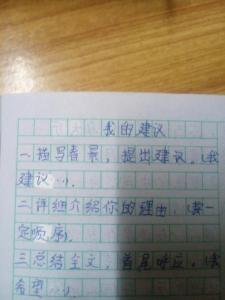 我的建议
一.描写背景，提出建议。(我
建议…).
二.详细介绍你的理由，(按一
定顺序).
三.总结全文，首尾呼应。(我
希望…).